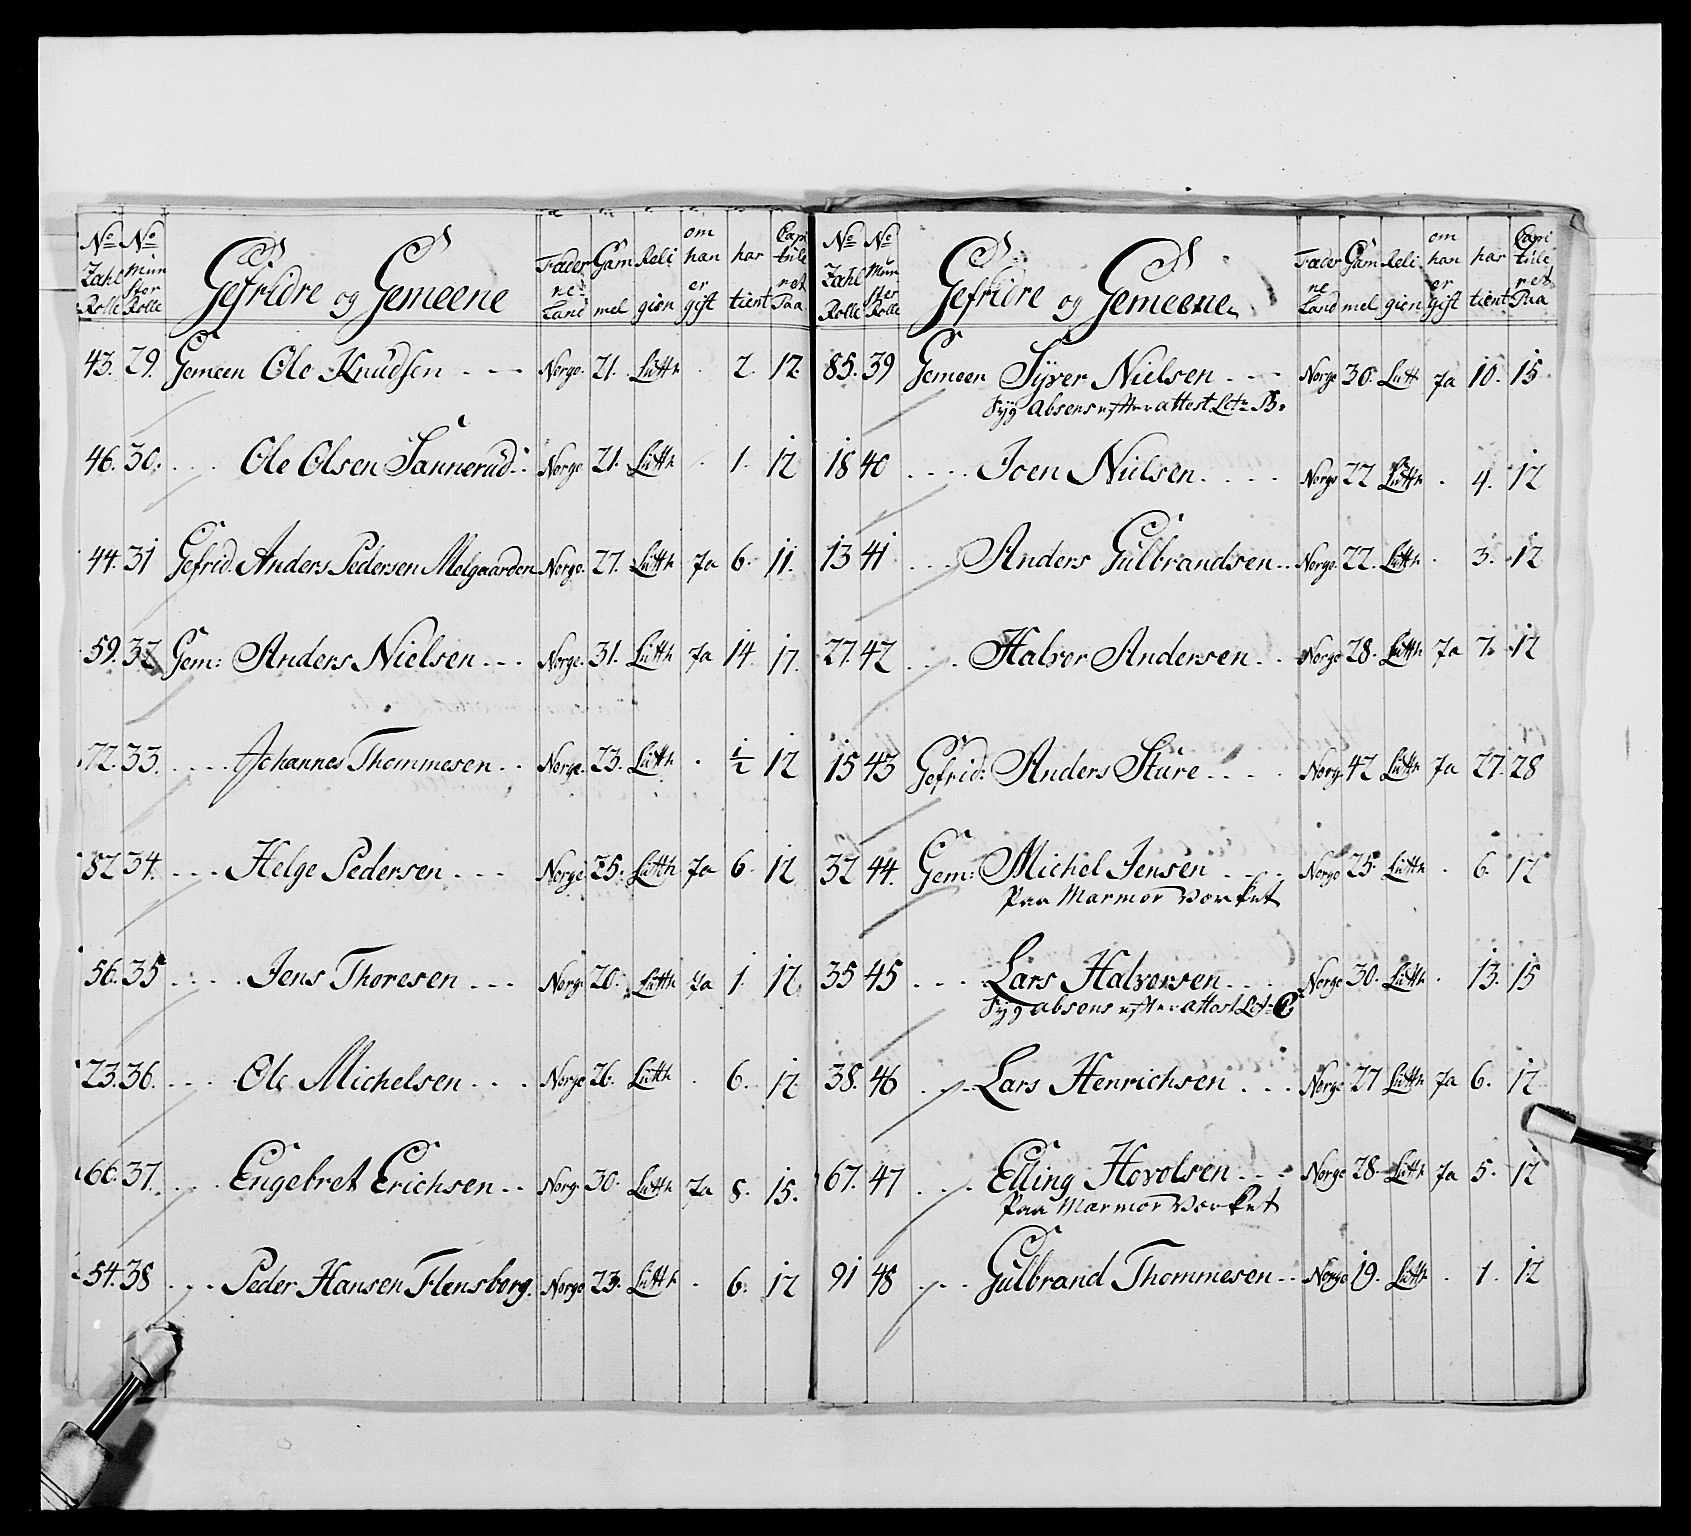 No Zahl Rolle No Münster Rolle Gefridre og Gemeene Fæderne Land Gammel Religion om han er gift har tient Capituleret Paa
43. 29. Gemeen Ole Knudsen - - - Norge. 21. Lutth . 2. 12
46. 30. . . . Ole Olsen Sannerud. . Norge 21. Lutth . 1. 12
44. 31 Gefrid. Anders Pedersen Melgaarden Norge. 27. Lutth Ja 6. 11.
59. 32 Gem: Anders Nielsen - - - Norge. 31. Lutth Ja 14. 17.
72. 33. - - - - Johannes Thommesen - - Norge. 23. Lutth . ½ 12
82 34. - - - Helge Pedersen - - - Norge 25. Lutth Ja 6. 12
56. 35 . . . . Jens Thoresen - - - Norge 20. Lutth Ja 1. 12.
23. 36. - - - . Ole Michelsen - - - . Norge 26. Lutth . 6. 12
66. 37. . . . Engebret Erichsen - - Norg. 30. Lutth Ja 8. 15.
54. 38 - - - Peder Hansen Flensborg. Norge 23. Lutth . 6. 12
No Zahl Rolle No Münster Rolle Gefridre og Gemeene. Fæderne Land Gammel Religion om han er Gift har tient Capituleret Paa
85. 39 Gemeen Syver Nielsen - - - Norge 30. Lutt Ja 10. 15
Syg absens efter attest Letr B.
18 40 . - - - Joen Nielsen. . . . Norge 22 Lutth . 4. 12
13 41 . - - - Anders Gulbrandsen . . Norge. 22. Lutth . 3. 12
27. 42 . . . . Halvor Andersen . . Norge 28. Lutth Ja 7. 12
15 43 Gefrid: Anders Sture . . . . Norg. 42 Lutth Ja 27. 28
32 44. Gem: Michel Jensen . - - . Norge 25. Lutth . 6. 12
Paa Marmor Verket
35 45 . . . . Lars Halvorsen . . . Norge 30. Lutth . 13. 15
Syg absens efter attest Letr C
38. 46 . . . Lars Henrichsen . . . Norge 27 Lutth Ja 6. 12
67. 47 . . . . Elling Hovolsen - - - Norge 28. Lutth Ja 5. 12
Paa Marmor Verket
91 48 . - - Gulbrand Thommesen - - Norge 19. Lutth . 1. 12